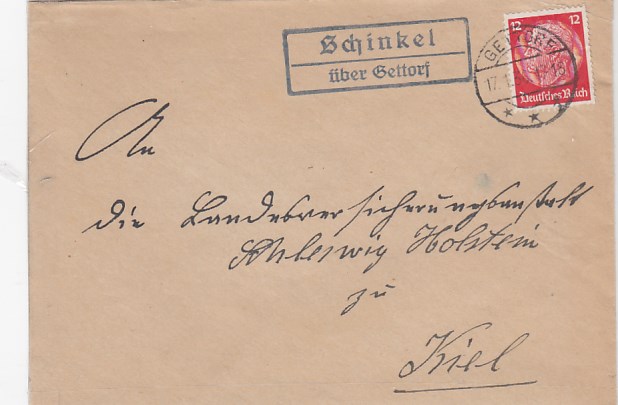 Schinkel
über Gettorf
GETTORF
12 12
Deutsches Reich
An
die Landesversicherungsanstalt
Schleswig Holstein
zu
Kiel